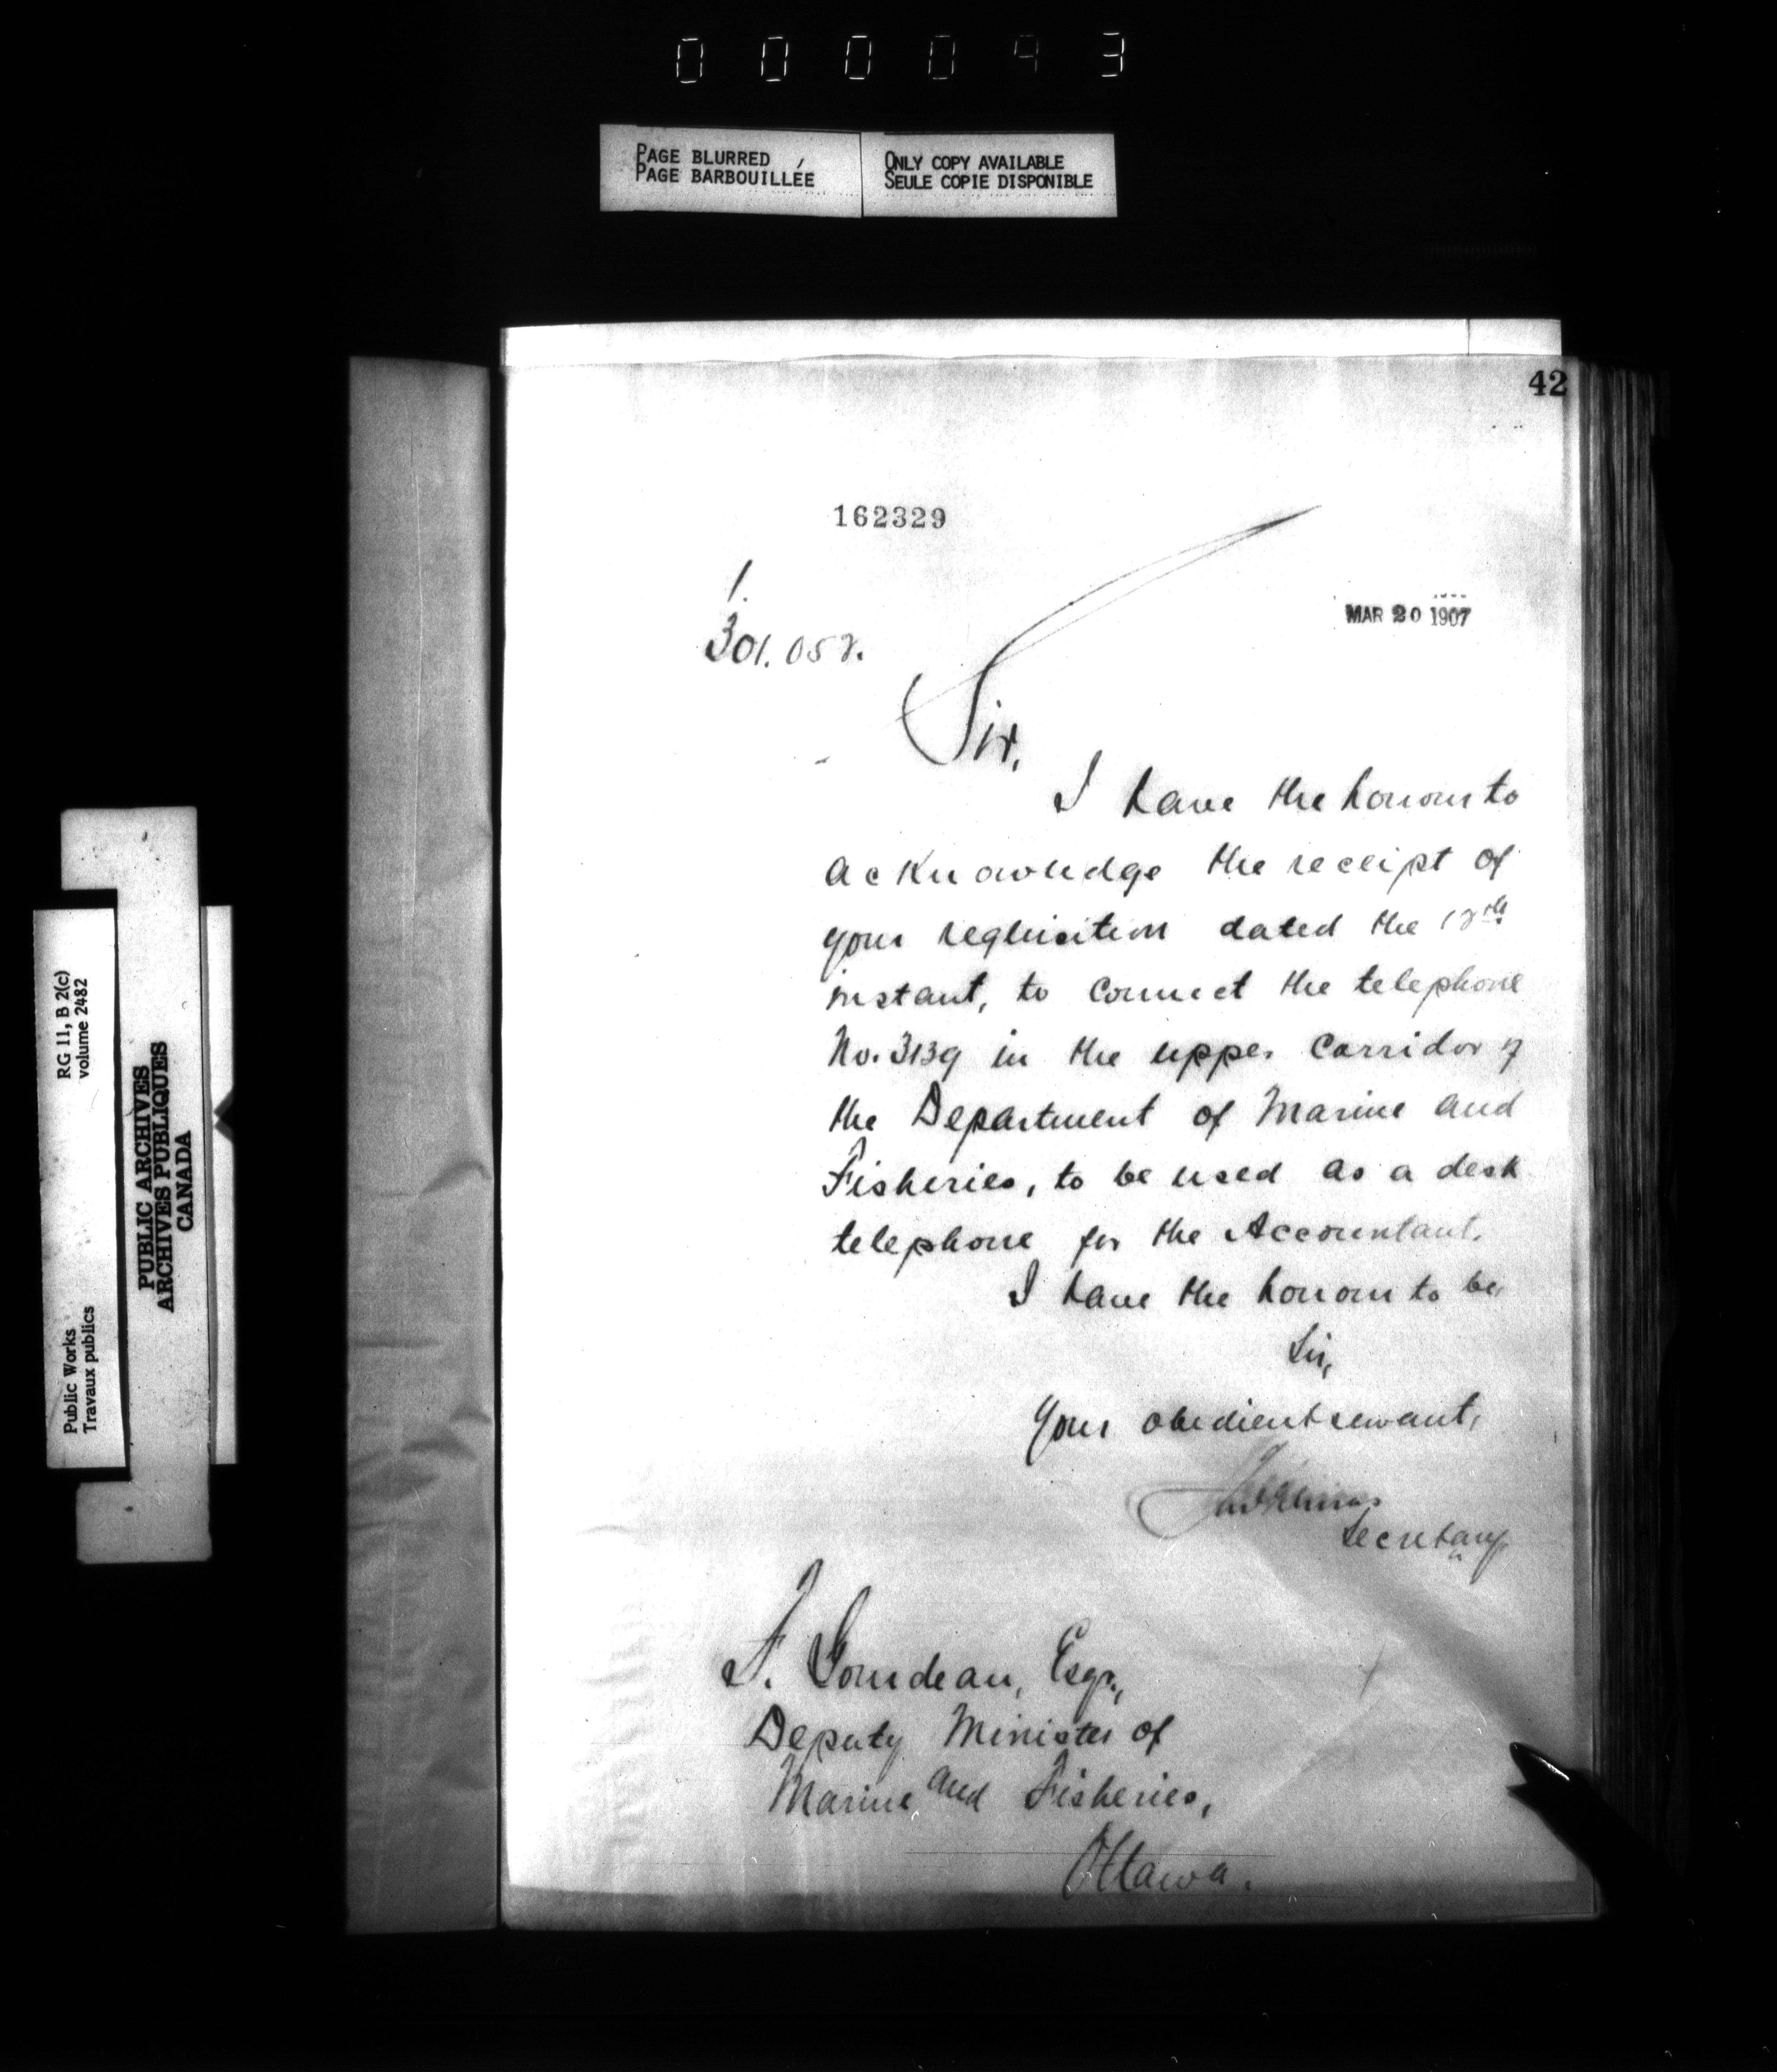 000093
PAGE BLURRED
PAGE BARBOUILLÉE
ONLY COPY AVAILABLE
SEULE COPIE DISPONIBLE
42
162329
MAR 20 1907
1.
301.058.
Sir,
I have the honour to
acknowledge the receipt of
your requisition dated the 18th
instant, to connect the telephone
No. 3139 in the upper Corridor of
the Department of Marine and
Fisheries, to be used as a desk
telephone for the Accountant.
I have the honour to be,
Sir,
Your obedient servant,
Secretary
F. Gourdeau, Esqr.,
Deputy Minister of
Marine and Fisheries,
Ottawa.
RG 11, B 2(c)
volume 2482
Public Works
Travaux publics
PUBLIC ARCHIVES
ARCHIVES PUBLIQUES
CANADA